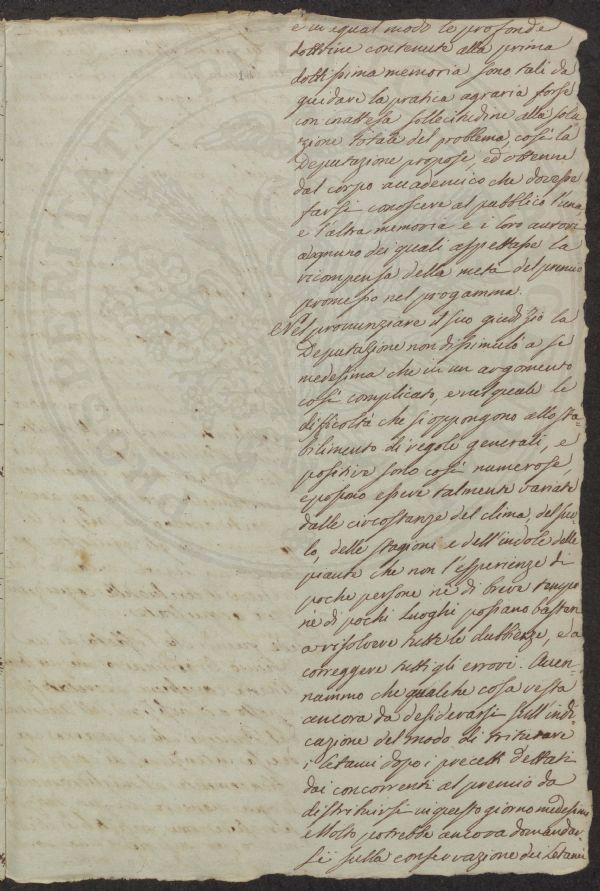 e in egual modo le profonde
dottrine contenute alla prima
dottissima memoria sono tali da
guidare la pratica agraria forse
con inattesa sollecitudine alla solu
zione totale del problema, così la
Deputazione propose, ed ottenne
dal corpo accademico che dovesse
farsi conoscere al pubblico l'una
e l'altra memoria e i loro autori
ognuno dei quali aspettasse la
ricompensa della metà del premio
promesso nel progamma.
Nel pronunziare il suo giudizio la
Deputazione non dissimulò a se
medesima che in un argomento
così complicato, e nel quale le
difficoltà che si oppongono allo sta-
bilimento di regole generali, e
positive sono così numerose,
e possono essere talmente variate
dalle circostanze del clima, del suo
lo, delle stagioni e dell'indole delle
piante che non l'esperienze di
poche persone nè di breve tempo
nè di pochi luoghi possano bastare
a risolvere tutte le dubbiezze, e a
correggere tutti gli errori. Accen-
nammo che qualche cosa resta
ancora da desiderarsi sull'indi
cazione del modo di triturare
i letami dopo i precetti dettati
dai concorrenti al premio da
distribuirsi in questo giorno medesimo
e Molto potrebbe ancora domandar
si sulla conservazione dei Letami
PROSPERITATI